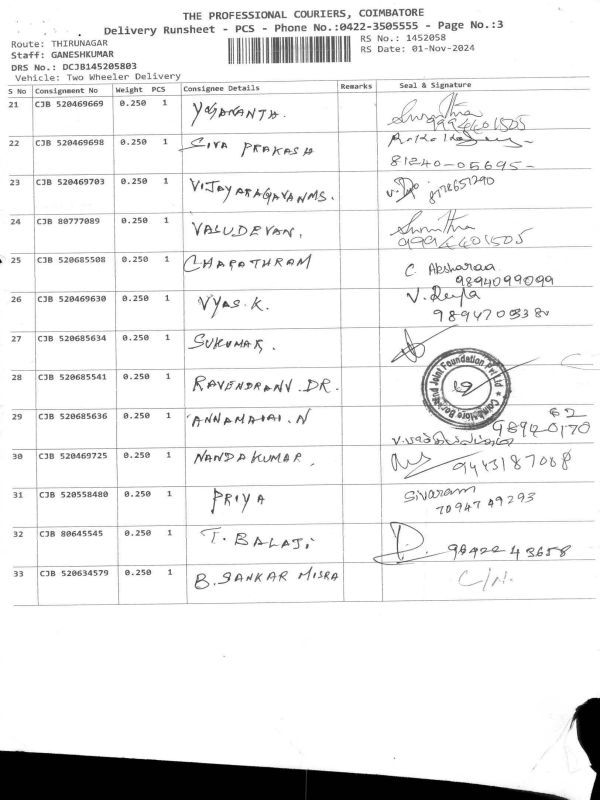 THE PROFESSIONAL COURIERS, COIMBATORE
Delivery Runsheet - PCS - Phone No.:0422-3505555 - Page No.:3
Route: THIRUNAGAR RS No.: 1452058
Staff: GANESHKUMAR RS Date: 01-Nov-2024
DRS No.: DCJB145205803
Vehicle: Two Wheeler Delivery
S No Consignment No Weight PCS Consignee Details Remarks Seal & Signature
21 CJB 520469669 0.250 1 YOGANANTA. 9994401505
22 CJB 520469698 0.250 1 SIVA PRAKASH
81240-05695-
23 CJB 520469703 0.250 1 VIJAYARAGAVANMS.
24 CJB 80777089 0.250 1 VASUDEVAN.
9994401505
25 CJB 520685508 0.250 1 C. Aksharaa
9894099099
26 CJB 520469630 0.250 1 VYAS.K. V. Devla
27 CJB 520685634 0.250 1 SUKUMAR.
28 CJB 520685541 0.250 1 RAVENDRANV.DR.
Coimbatore Bone and Joint Foundation Pvt Ltd
29 CJB 520685636 0.250 1 ANNAMALAI.N
30 CJB 520469725 0.250 1 NANDAKUMAR. 9443187088
31 CJB 520558480 0.250 1 PRIYA Sivaram
7094749293
32 CJB 80645545 0.250 1 T. BALAJi
33 CJB 520634579 0.250 1 B. SANKAR MISRA